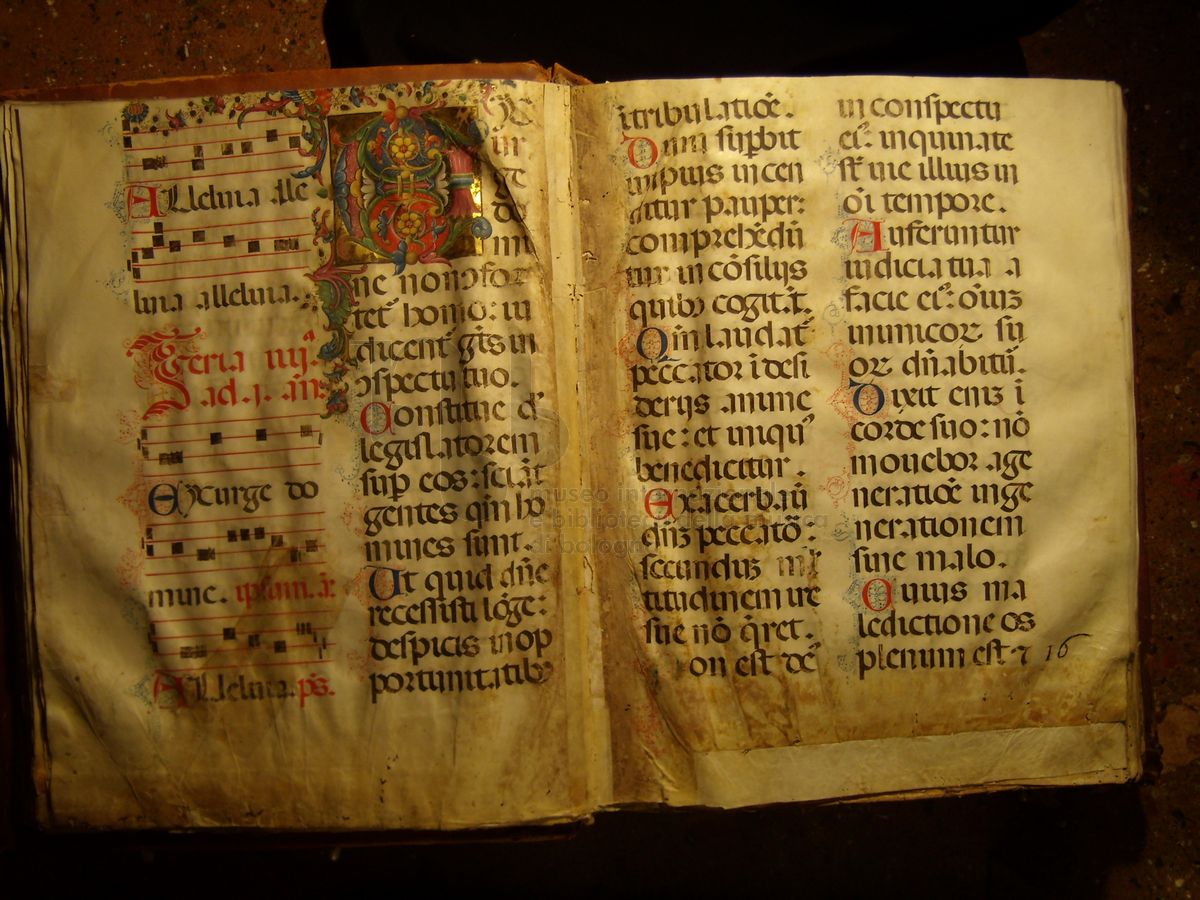 Alleluia alle
luia alleluia.
Feria iiij.
ad. j. nn.
Exurge do
mine. ipsum. ā:
Alleluia. ps.
EXC
ur
ge
do
mi
ne non ↄfor
tet᷑ homo: iu
dicent᷑ gētes in
ↄspectu tuo.
Constitue dn̄e
legislatorem
sup̱ eos: sciāt
gentes qm̄ ho
mines sunt.
Ut quid dn̄e
recessisti lōge:
despicis in op
portunitatibꝰ
ī tribulatiōe.
Dum sup̱bit
impius incen
ditur pauper:
comprehēdūt
tur in cōsilijs
quibꝰ cogitāt.
Qm̄ laudat᷑
peccator ī desi
derijs anime
sue: et iniquꝰ
benedicitur.
Exacerbauit
dn̄m peccatō:
secundum mul
titudinem ire
sue nō q̄ret.
on est deꝰ
in conspectu
eiꝰ: inquinate
st̄ uie illius in
oī tempore.
Auferuntur
iudicia tua a
facie eiꝰ: oīuꝫ
inimicoꝝ su
oꝝ dn̄abitur.
Dixit eniꝫ ī
corde suo: nō
mouebor a ge
neratiōe in ge
nerationem
sine malo.
Cuius ma
ledictione os
plenum est ⁊
16
museo internazionale
e biblioteca della musica
di bologna